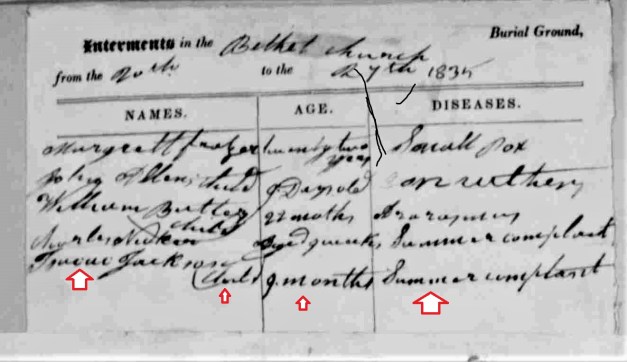 Interments in the Bethel Church Burial Ground,
from the 20th to the 27th 1835
NAMES. AGE. DISEASES.
Margrett frazer twenty two years Small Pox
John Allens child 9 Days old
William Butler child 22 moths
Charles aged 9 weeks Summer complaint
Jackson Child 9 months Summer complaint